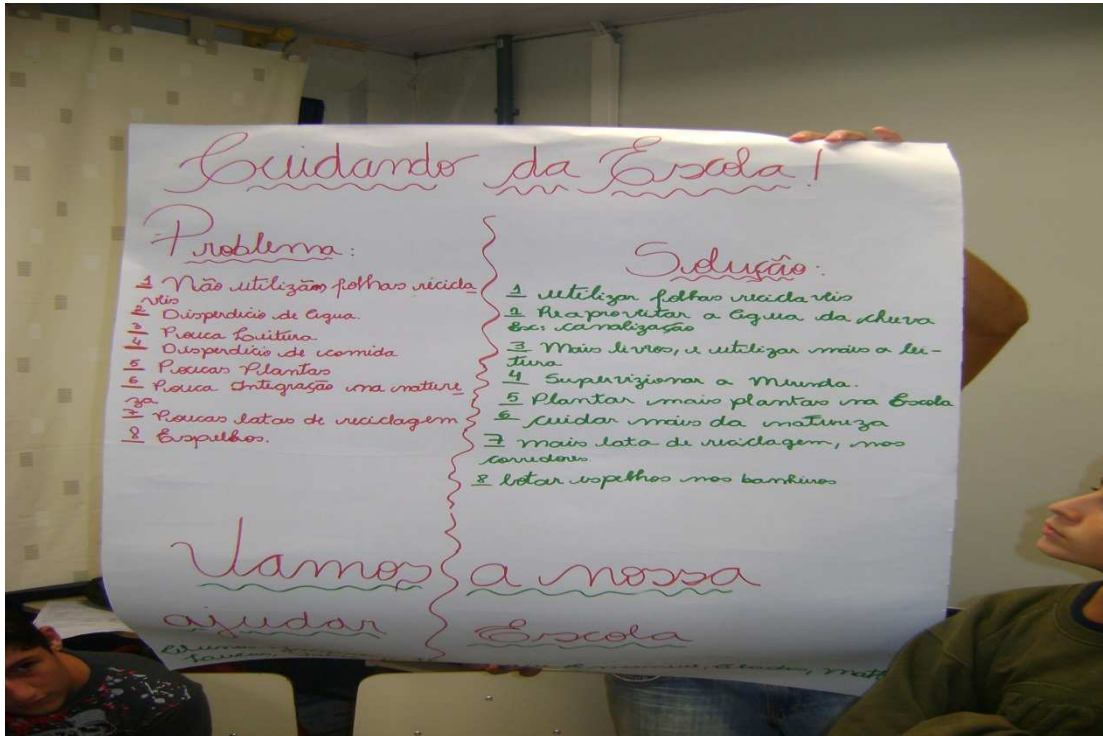 Cuidando da Escola!
Problema:
1 Não utilizão folhas recicla
veis
2 Disperdicio de água.
3 Pouca Leitura
4 Disperdicio de comida
5 Poucas Plantas
6 Pouca Integração na nature
za
7 Poucas latas de reciclagem
8 Espelhos.
Solução:
1 utilizar folhas reciclaveis
2 Reaproveitar a água da chuva
Ex: canalização
3 Mais livros, e utilizar mais a lei-
tura
4 Supervizionar a Merenda.
5 Plantar mais plantas na Escola
6 cuidar mais da natureza
7 mais lata de reciclagem, nos
corredores
8 botar espelhos nos banheiros
Vamos a nossa
ajudar Escola